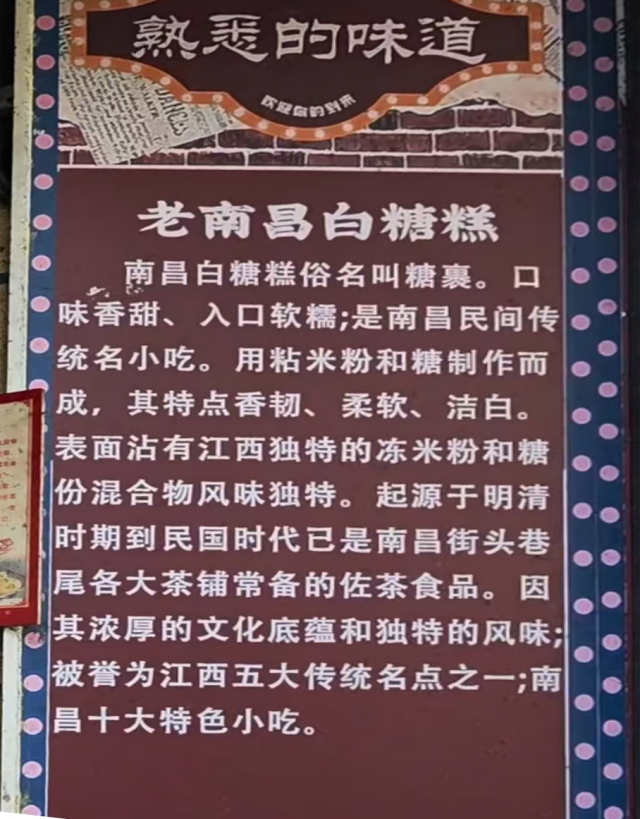 熟悉的味道
欢迎您的到来
老南昌白糖糕
南昌白糖糕俗名叫糖裹。口
味香甜、入口软糯;是南昌民间传
统名小吃。用粘米粉和糖制作而
成，其特点香韧、柔软、洁白。
表面沾有江西独特的冻米粉和糖
份混合物风味独特。起源于明清
时期到民国时代已是南昌街头巷
尾各大茶铺常备的佐茶食品。因
其浓厚的文化底蕴和独特的风味;
被誉为江西五大传统名点之一;南
昌十大特色小吃。